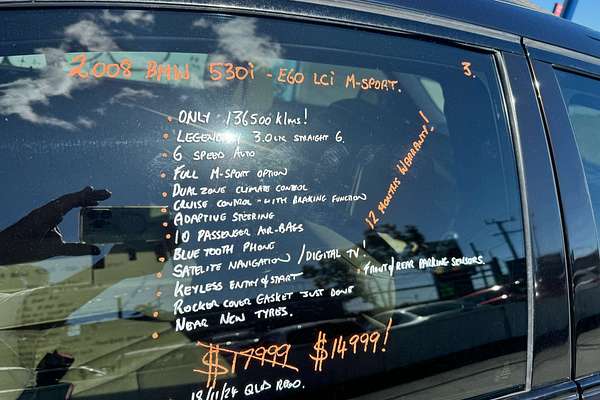 2008 BMW 530i - E60 LCi M-SPORT. 3.
• ONLY 136500 klms!
• LEGENDARY 3.0LTR STRAIGHT 6.
• 6 SPEED AUTO
• FULL M-SPORT OPTION
• DUAL ZONE CLIMATE CONTROL
• CRUISE CONTROL - WITH BRAKING FUNCTION
• ADAPTIVE STEERING
• 10 PASSENGER AIR-BAGS
• BLUE TOOTH PHONE
• SATELITE NAVIGATION / DIGITAL TV!
• KEYLESS ENTRY & START
• FRONT/REAR PARKING SENSORS.
• ROCKER COVER GASKET JUST DONE
• NEAR NEW TYRES.
12 MONTHS WARRANTY!
$17999 $14999!
18/11/24 QLD REGO.